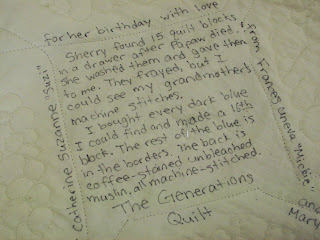 for her birthday with love
Sherry found 15 quilt blocks
in a drawer after Papaw died.
She washed them and gave them
to me. They frayed, but I
could see my grandmother's
machine stitches.
I bought every dark blue
I could find and made a 16th
block. The rest of the blue is
in the borders. The back is
coffee-stained unbleached
muslin, all machine-stitched.
The Generations
Quilt
Catherine Suzanne "Suzi"
from Frances "Mickie"
and
Mary